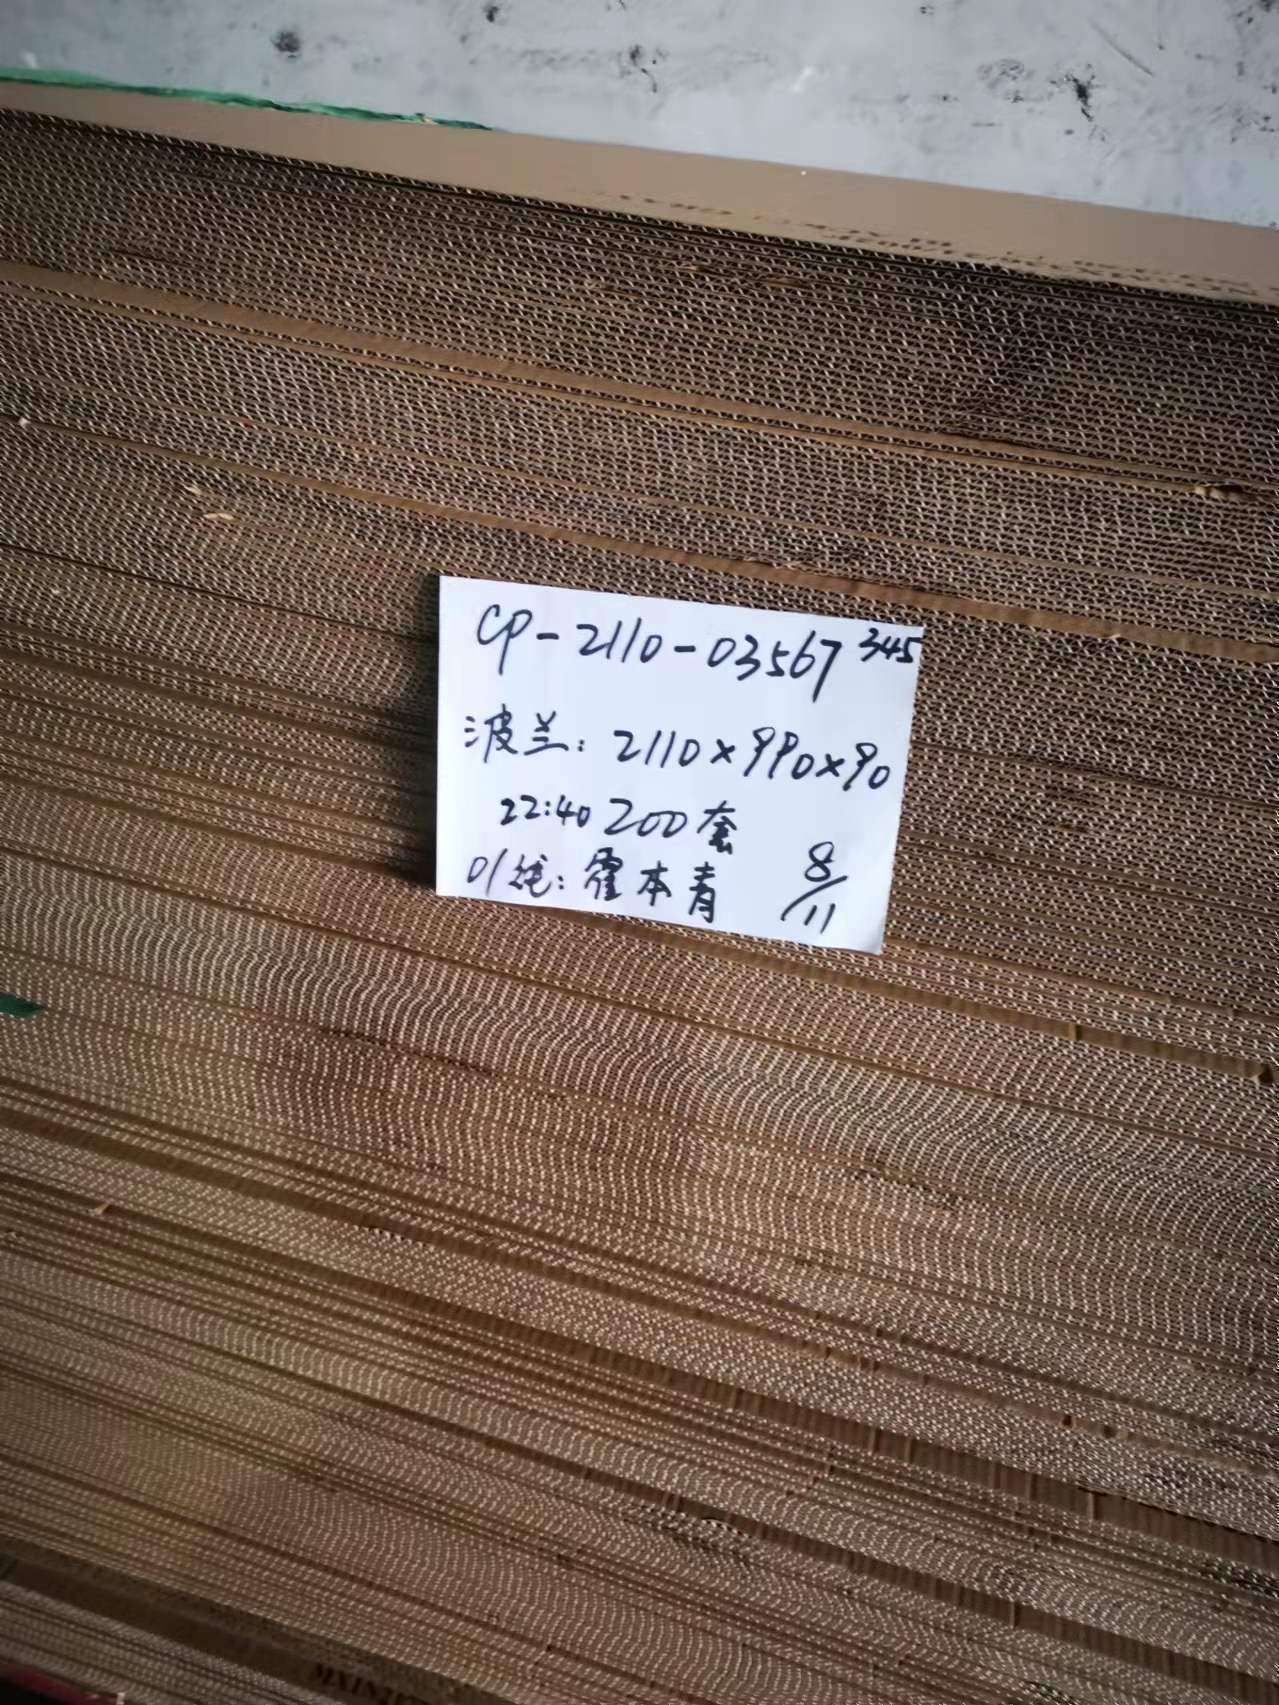 CP-2110-03567 345
波兰: 2110×990×90
22:40 200套
01线: 霍本青 8/11